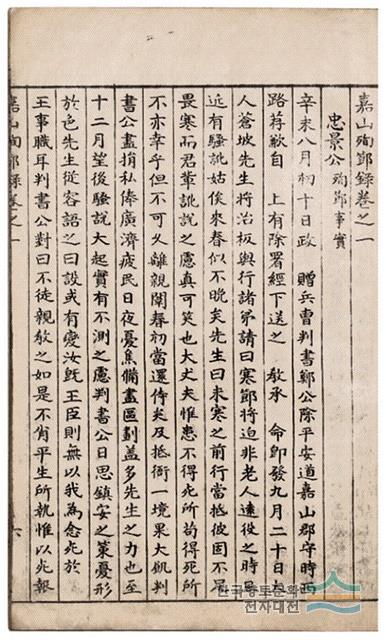 嘉山殉節錄卷之一
忠景公殉節事實
辛未八月初十日政 贈兵曹判書鄭公除平安道嘉山郡守時西
路荐歉自 上有除署經下送之 敎承 命卽發九月二十日大
人蒼坡先生將治板輿行諸弟請曰寒節將迫非老人遠役之時且
近有騷訛姑俟來春似不晩矣先生曰未寒之前行當抵彼固不足
畏寒而君輩訛說之慮眞可笑也大丈夫惟患不得死所苟得死所
不亦幸乎但不可久離親闈春初當還侍矣及抵衙一境果大飢判
書公盡捐私俸廣濟疲民日夜憂焦備盡區劃盖多先生之力也至
十二月望後騷說大起實有不測之慮判書公日思鎭安之策憂形
於色先生從容語之曰設或有變汝旣王臣則無以我爲念死於
王事職耳判書公對曰不徒親敎之如是不肖平生所執惟以死報
嘉山殉節錄卷之一 六
한국향토문화
전자대전